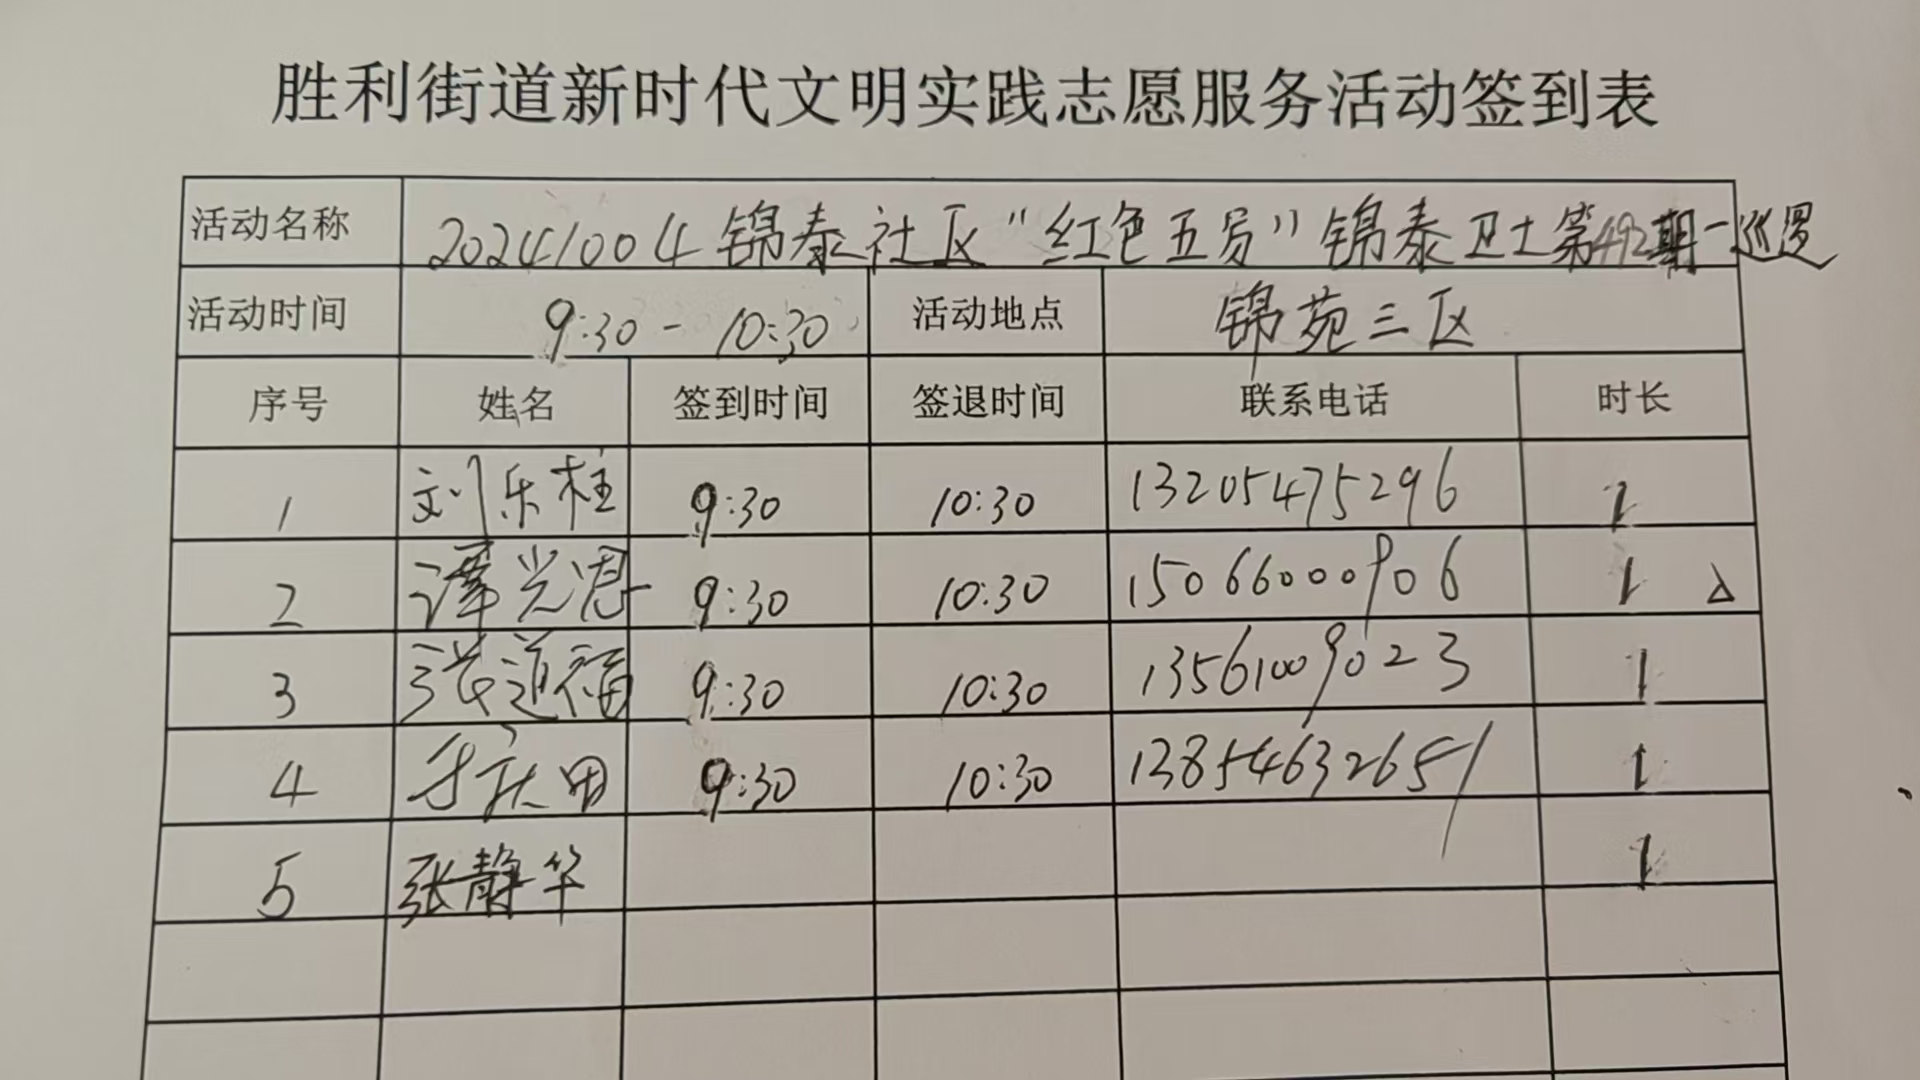 胜利街道新时代文明实践志愿服务活动签到表
活动名称 20241004锦泰社区“红色五员”锦泰卫士第492期-巡逻
活动时间 9:30-10:30 活动地点 锦苑三区
序号 姓名 签到时间 签退时间 联系电话 时长
1 刘乐柱 9:30 10:30 13205475296 1
2 谭光恩 9:30 10:30 15066000906 1 △
3 张道福 9:30 10:30 13561009023 1
4 9:30 10:30 13854632651 1
5 张静华 1